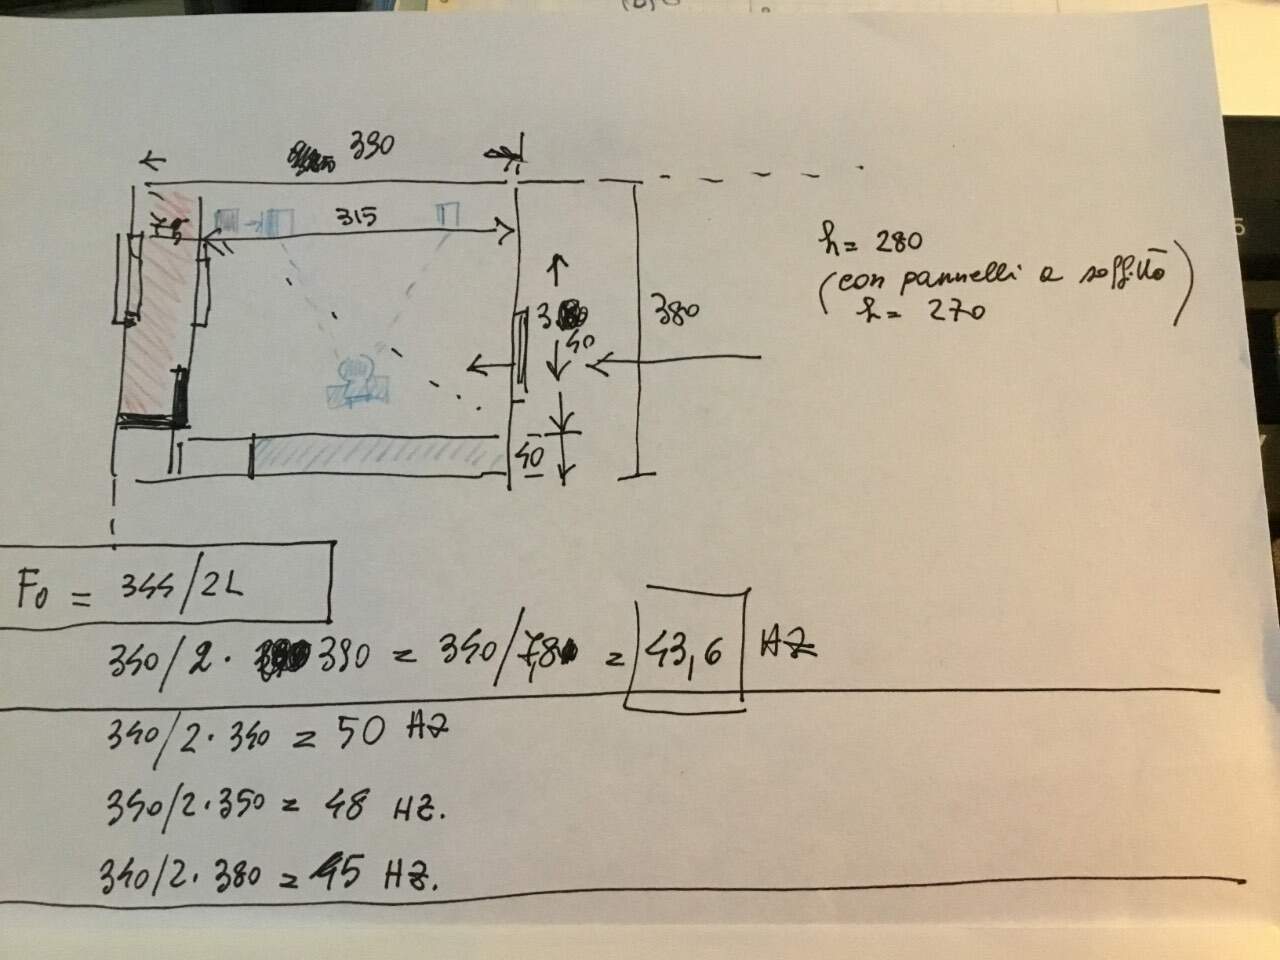 390
75
315
340
380
40
h = 280
(con pannelli a soffitto)
h = 270
F0 = 344/2L
340/2 · 390 = 340/7,8 = 43,6 HZ
340/2 · 340 = 50 HZ
340/2 · 350 = 48 HZ.
340/2 · 380 = 45 HZ.